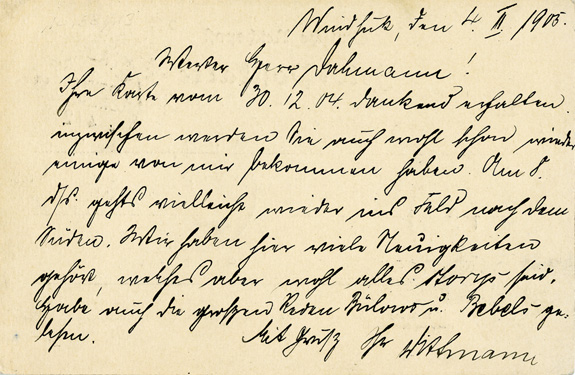 Windhuk, den 4. II 1905.
Werter Herr Dahmann!
Ihre Karte vom 30.12.04. dankend erhalten.
inzwischen werden Sie auch wohl schon wieder
einige von mir bekommen haben. Am 8.
d/s. gehts vielleicht wieder ins Feld nach dem
Süden. Wir haben hier viele Neuigkeiten
gehört, welches aber wohl alles Storys sind.
Habe auch die großen Reden Bülows u. Bebels ge-
lesen. Mit Gruß Ihr Wittmann